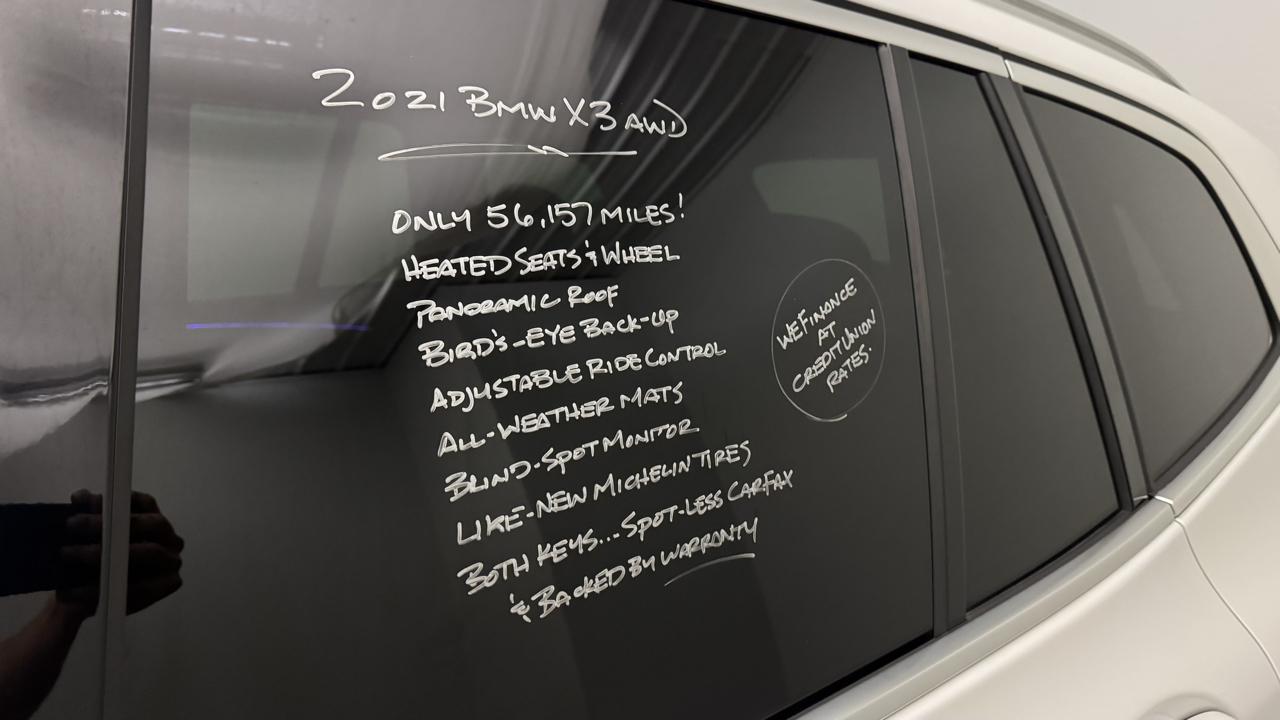 2021 BMW X3 AWD
ONLY 56,157 MILES!
HEATED SEATS & WHEEL
PANORAMIC ROOF
BIRD'S-EYE BACK-UP
ADJUSTABLE RIDE CONTROL
ALL-WEATHER MATS
BLIND-SPOT MONITOR
LIKE-NEW MICHELIN TIRES
BOTH KEYS... SPOT-LESS CARFAX
& BACKED BY WARRANTY
WE FINANCE
AT
CREDIT UNION
RATES.